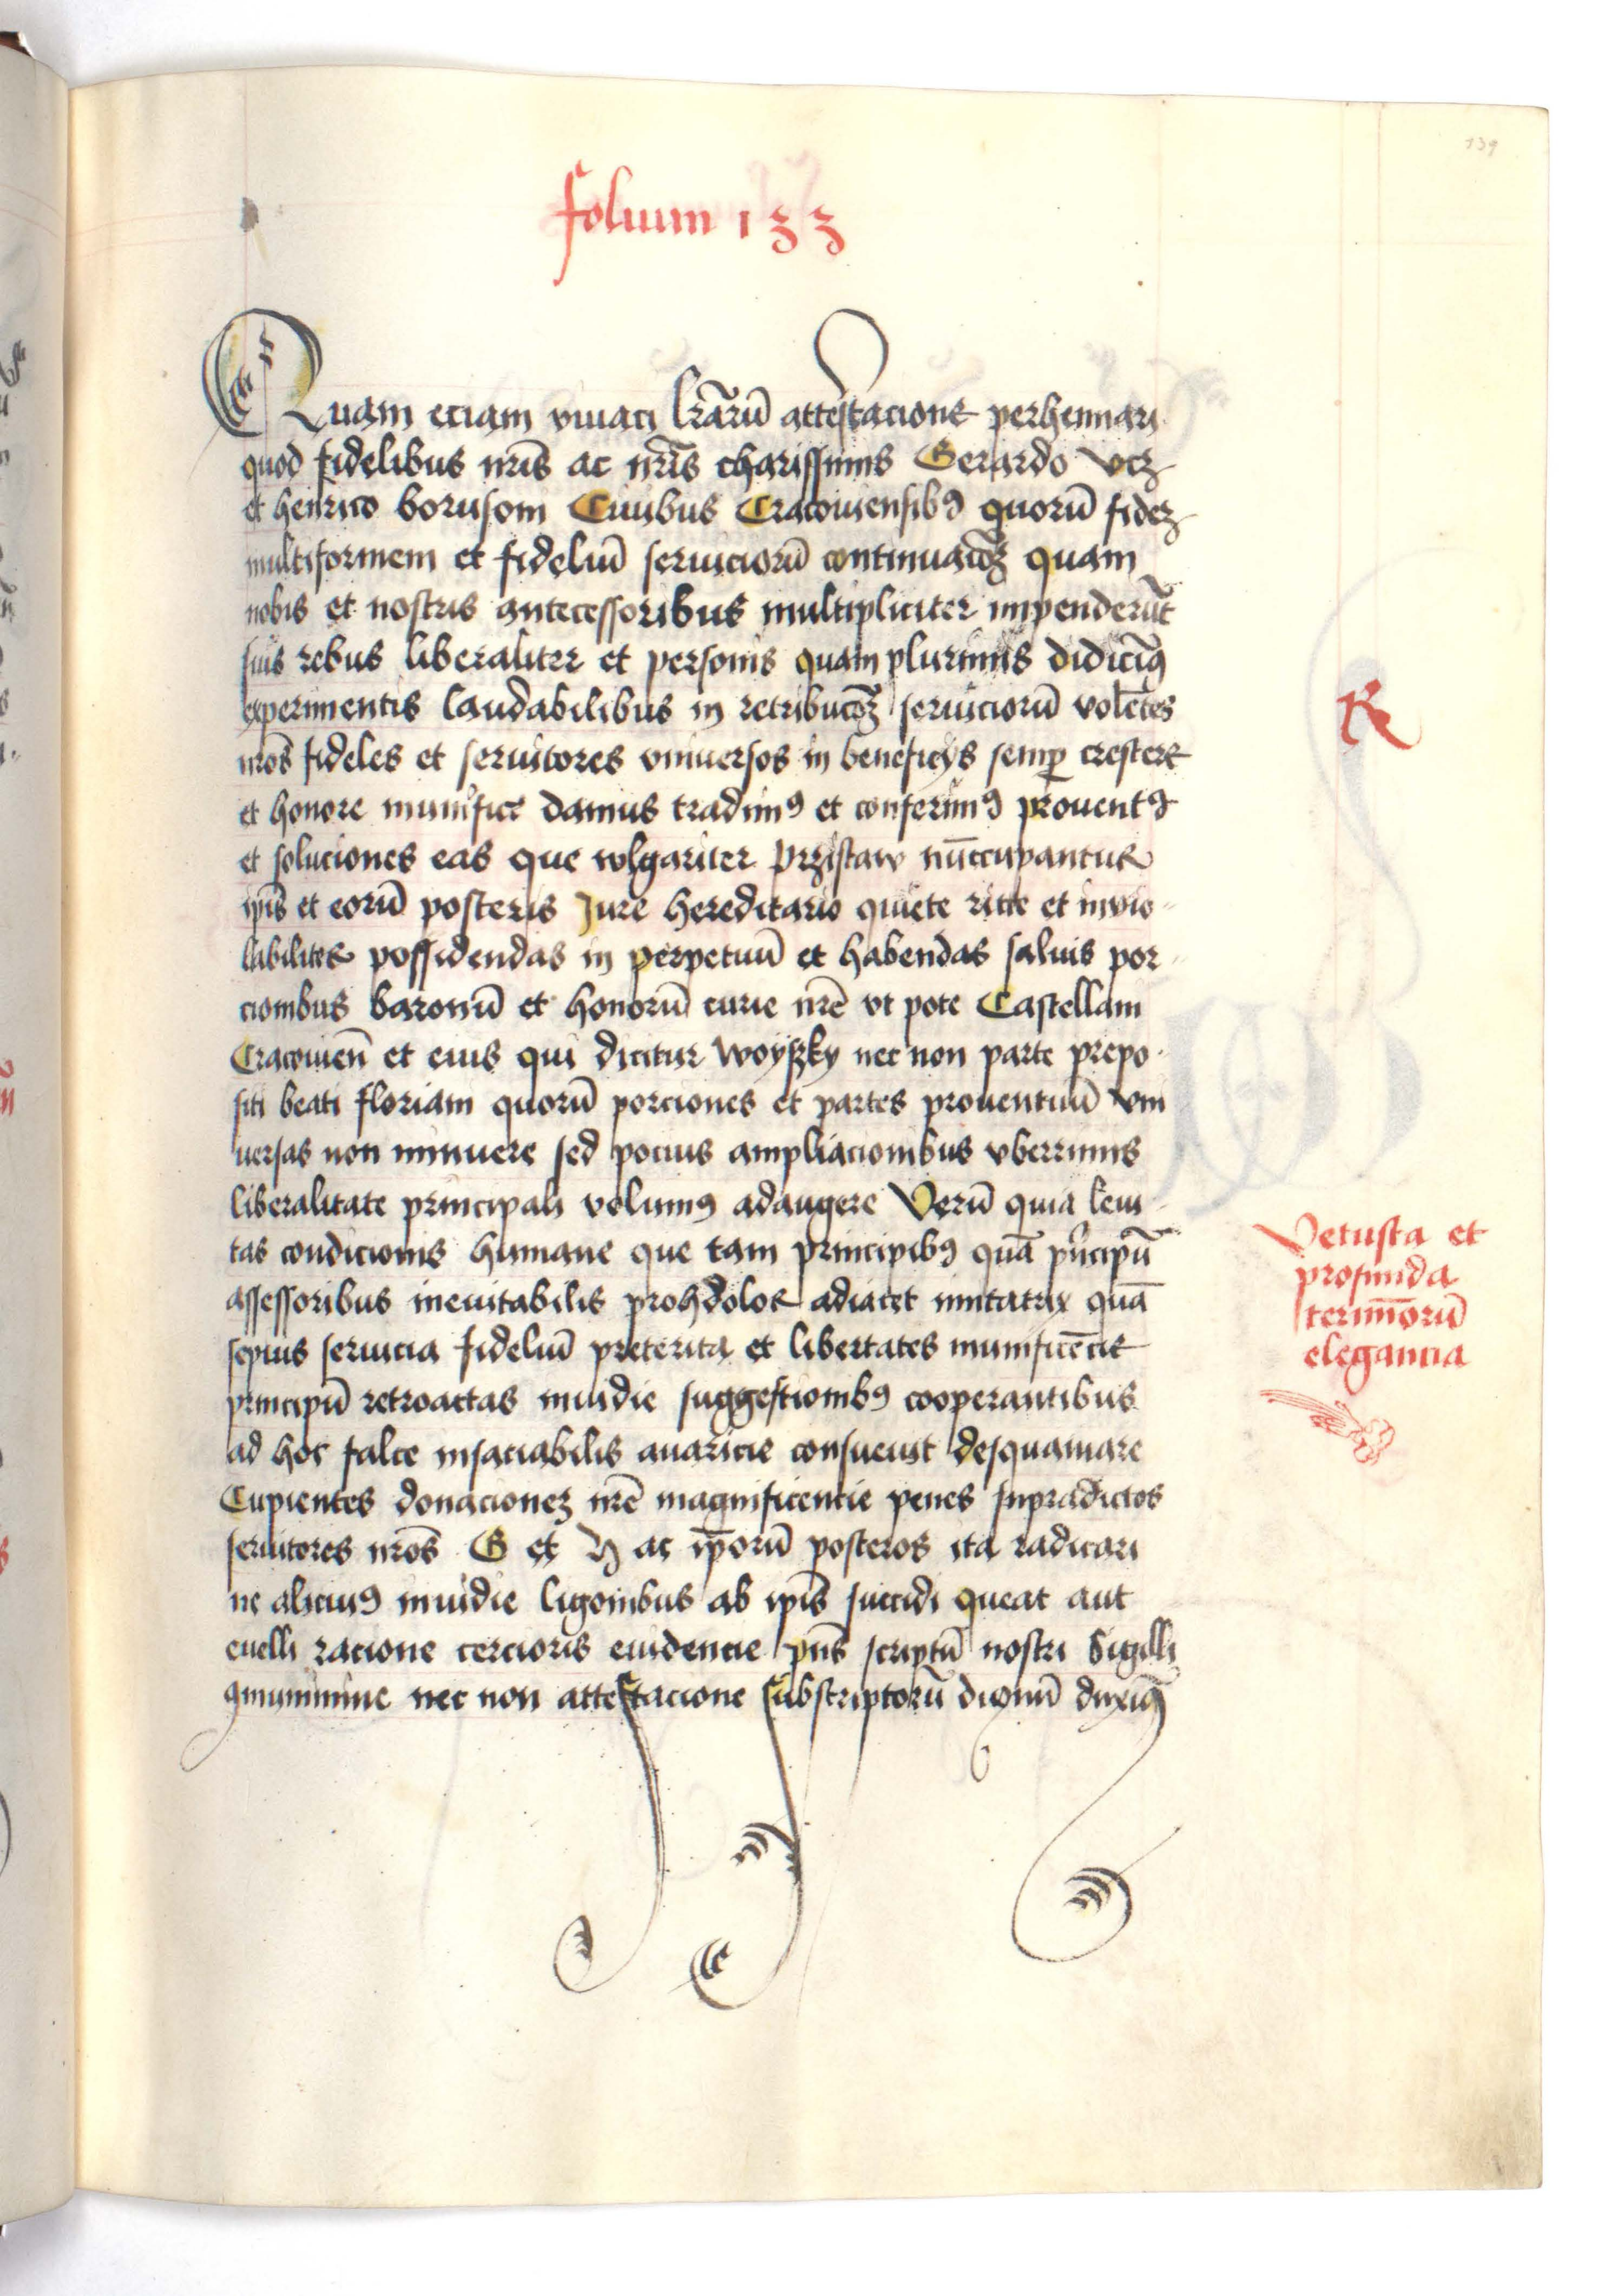 139
folium 133
Quam eciam viuaci lr̄arū attestacione perhennari
quod fidelibus nr̄is ac nr̄is charissimis Gerardo vcz
et henrico borusom Ciuibus Cracouiensibꝰ quorū fidez
multiformem et fideliū seruiciorū continuacōꝫ quam
nobis et nostris antecessoribus multipliciter impenderūt
suis rebus liberaliter et personis quam plurimis didicimꝰ
experimentis laudabilibus in retribucōꝫ seruiciorū volētes
nr̄os fideles et seruitores vniuersos in beneficijs semꝑ crescere
et honore munifice damus tradimꝰ et conferimꝰ prouentꝰ
et soluciones eas que wlgariter Przistaw nūccupantur
ip̄is et eorū posteris Jure hereditario quiete rite et invio-
labiliter possidendas in perpetuū et habendas saluis por-
cionibus baronū et honorū curie nr̄e vt pote Castellani
Cracouien̄ et eius qui dicitur woyszky nec non parte prepo-
siti beati floriani quorū porciones et partes prouentuū vni
uersas non minuere sed pocius ampliacionibus vberrimis
liberalitate principali volumꝰ adaugere Verū quia leui-
tas condicionis humane que tam principibꝰ quā pͥncipū
assessoribus ineuitabilis prohdolor adiacet imitatrix quā
sepius seruicia fideliū preterita et libertates munificēcie
principū retroactas inuidie suggestionibꝰ cooperantibus
ad hoc falce insaciabilis auaricie consueuit desquamare
Cupientes donacionez nr̄e magnificentie penes supradictos
seruitores nr̄os G et H ac ip̄orū posteros ita radicari
ne alicuiꝰ inuidie ligonibus ab ip̄is succidi queat aut
euelli racione cercioris euidencie pn̄s scriptū nostri Sigilli
ꝯmunimine nec non attestacione subscriptorū dignū duximꝰ
R
Vetusta et
profunda
terminorū
elegancia